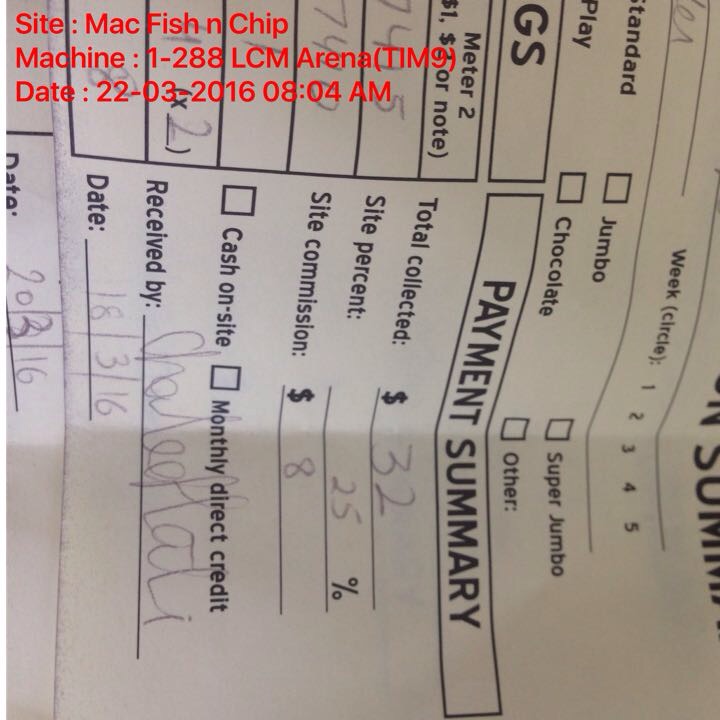 Site : Mac Fish n Chip
Machine : 1-288 LCM Arena(TIM9)
Date : 22-03-2016 08:04 AM
Week (circle): 1 2 3 4 5
Standard
Jumbo
Super Jumbo
Play
Chocolate
Other:
GS
PAYMENT SUMMARY
Meter 2
or note)
Total collected: $ 32
Site percent: 25 %
Site commission: $ 8
Cash on-site
Monthly direct credit
(x 2)
Received by:
Date: 18/3/16
Date: 20/3/16